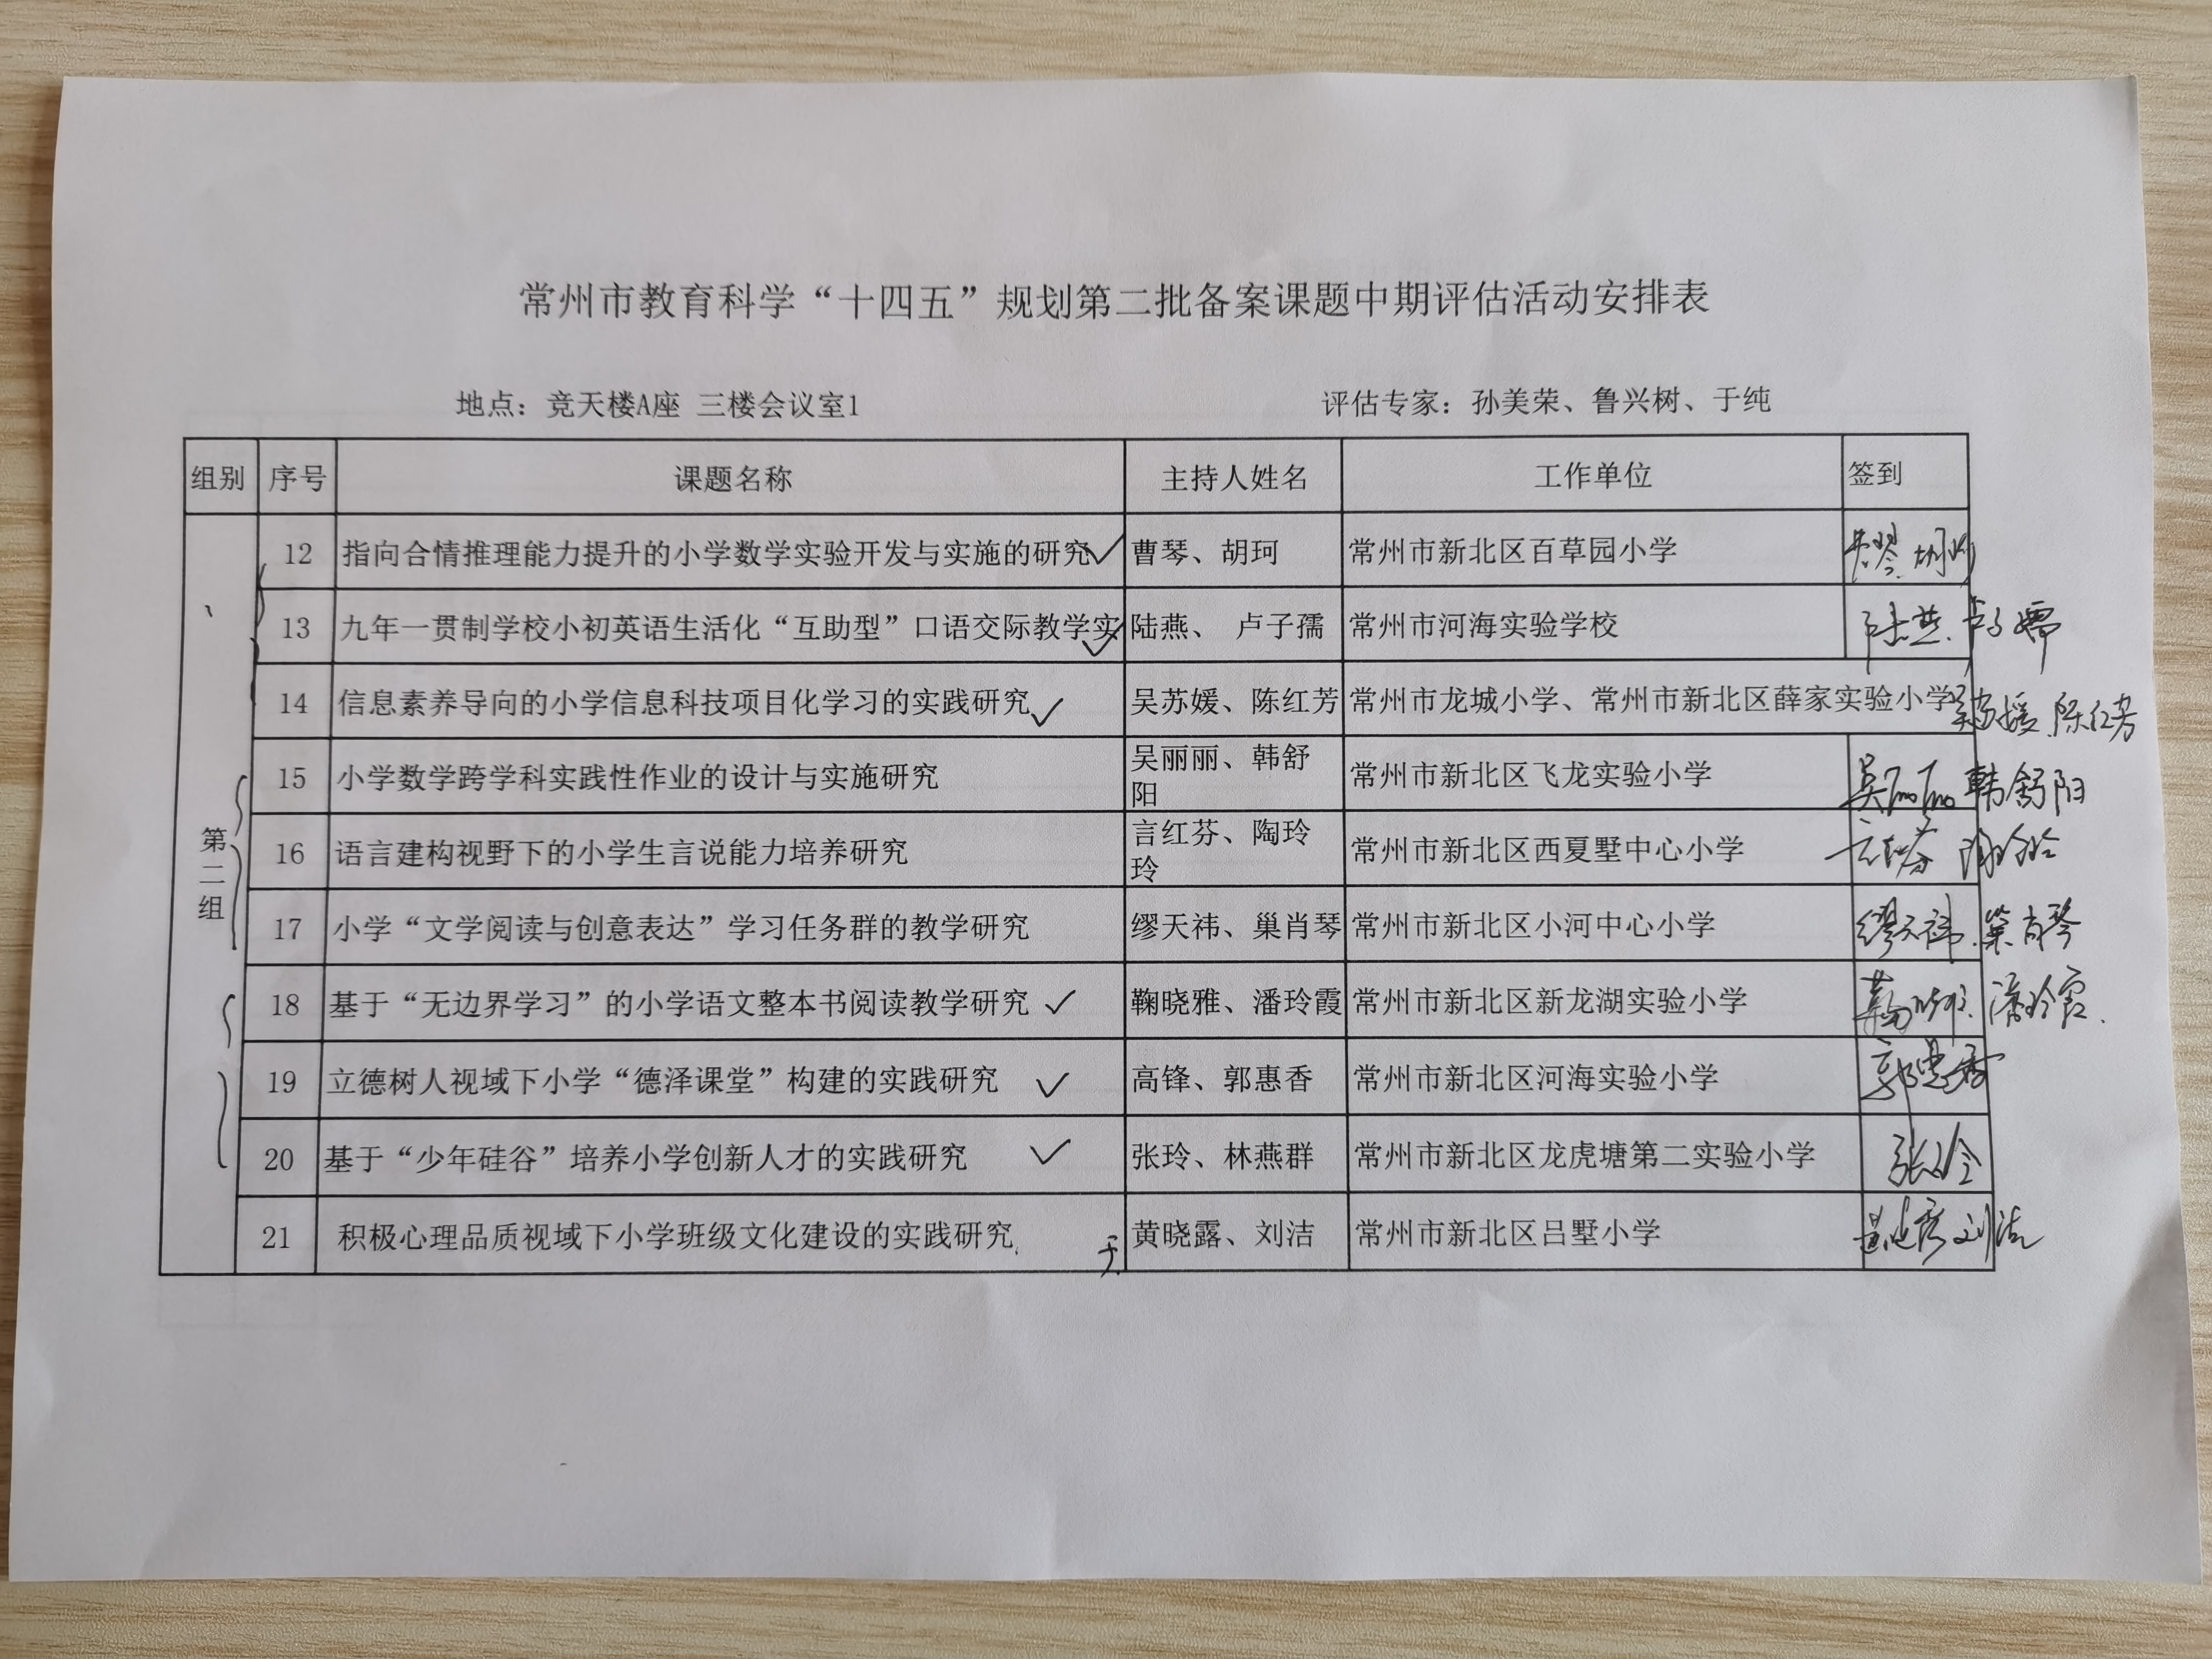 常州市教育科学“十四五”规划第二批备案课题中期评估活动安排表
地点：竞天楼A座 三楼会议室1 评估专家：孙美荣、鲁兴树、于纯
组别 序号 课题名称 主持人姓名 工作单位 签到
第二组
12 指向合情推理能力提升的小学数学实验开发与实施的研究 曹琴、胡珂 常州市新北区百草园小学 曹琴 胡珂
13 九年一贯制学校小初英语生活化“互助型”口语交际教学实 陆燕、 卢子孺 常州市河海实验学校 陆燕 卢子孺
14 信息素养导向的小学信息科技项目化学习的实践研究 吴苏媛、陈红芳 常州市龙城小学、常州市新北区薛家实验小学 吴苏媛 陈红芳
15 小学数学跨学科实践性作业的设计与实施研究 吴丽丽、韩舒阳 常州市新北区飞龙实验小学 吴丽丽 韩舒阳
16 语言建构视野下的小学生言说能力培养研究 言红芬、陶玲玲 常州市新北区西夏墅中心小学 言红芬 陶玲玲
17 小学“文学阅读与创意表达”学习任务群的教学研究 缪天祎、巢肖琴 常州市新北区小河中心小学 缪天祎 巢肖琴
18 基于“无边界学习”的小学语文整本书阅读教学研究 鞠晓雅、潘玲霞 常州市新北区新龙湖实验小学 鞠晓雅 潘玲霞
19 立德树人视域下小学“德泽课堂”构建的实践研究 高锋、郭惠香 常州市新北区河海实验小学 郭惠香
20 基于“少年硅谷”培养小学创新人才的实践研究 张玲、林燕群 常州市新北区龙虎塘第二实验小学 张玲
21 积极心理品质视域下小学班级文化建设的实践研究 黄晓露、刘洁 常州市新北区吕墅小学 黄晓露 刘洁